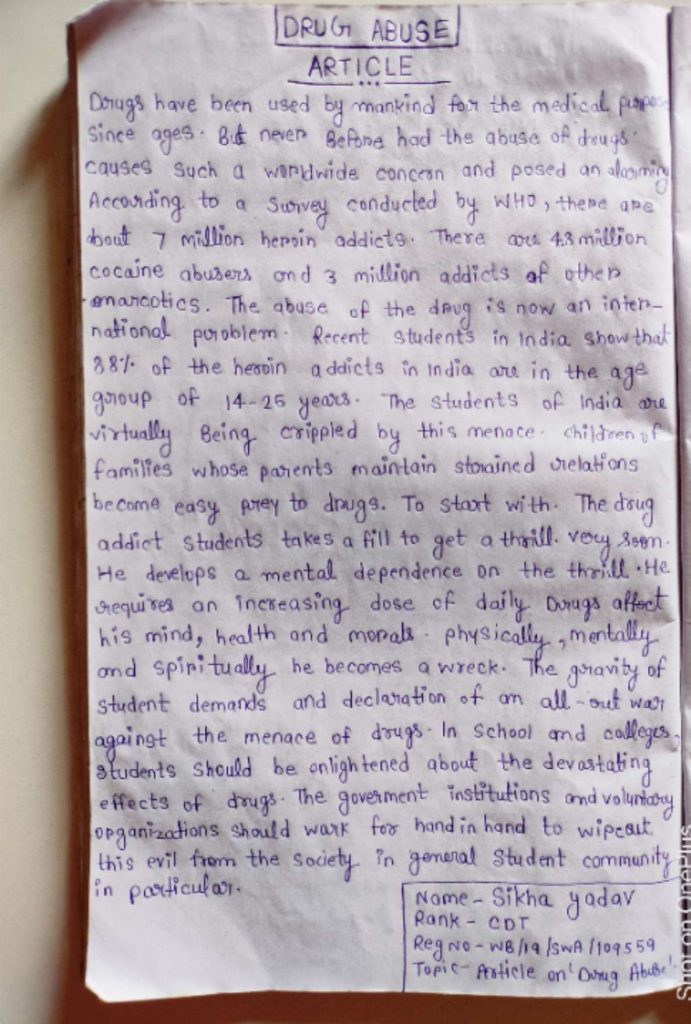 DRUG ABUSE
ARTICLE
Drugs have been used by mankind for the medical purpose
Since ages. But never Before had the abuse of drugs'
causes such a worldwide concern and posed an alarming
According to a Survey conducted by WHO, there are
about 7 million heroin addicts. There are 4.8 million
cocaine abusers and 3 million addicts of other
narcotics. The abuse of the drug is now an inter-
national problem. Recent Students in India show that
88% of the heroin addicts in India are in the age
group of 14-25 years. The Students of India are
virtually Being crippled by this menace. children of
families whose parents maintain strained relations
become easy prey to drugs. To start with. The drug
addict students takes a fill to get a thrill. very soon.
He develops a mental dependence on the thrill. He
requires an increasing dose of daily Drugs affect
his mind, health and morals. physically, mentally
and spiritually he becomes a wreck. The gravity of
student demands and declaration of an all-out war
against the menace of drugs. In School and colleges,
students should be enlightened about the devastating
effects of drugs. The goverment institutions and voluntary
organizations should work for hand in hand to wipeout
this evil from the society in general Student community
in particular.
Name - Sikha yadav
Rank - CDT
Reg No - WB/19/SWA/109559
Topic - Article on 'Drug Abuse'.
Shot on OnePlus